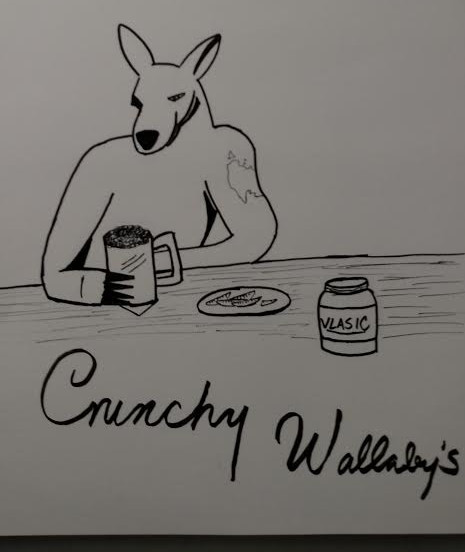 VLASIC
Crunchy Wallaby's